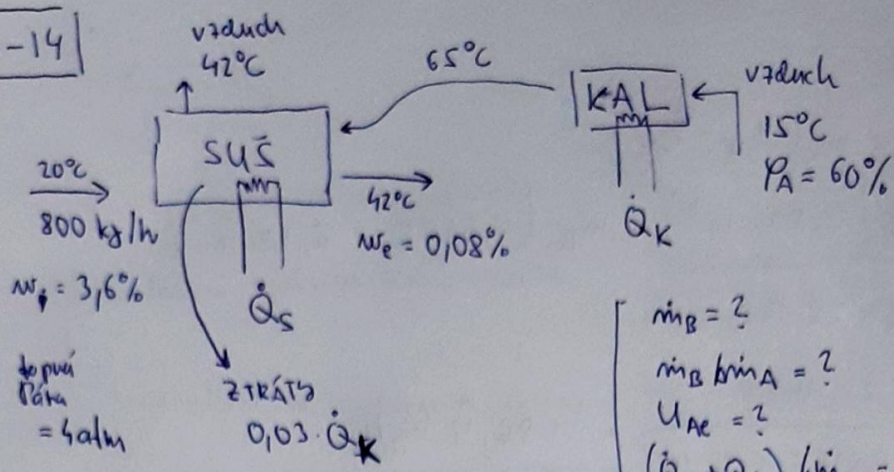 -14
vzduch
42°C
65°C
KAL
vzduch
15°C
φA = 60%
SUŠ
20°C
800 kg/h
wᵢ = 3,6%
42°C
we = 0,08%
Q̇K
Q̇S
topná
pára
= 4atm
ZTRÁTY
0,03·Q̇K
ṁB = ?
ṁB bin A = ?
UAe = ?